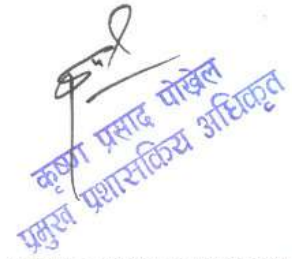 कृष्ण प्रसाद पोखेल
प्रमुख प्रशासकिय अधिकृत